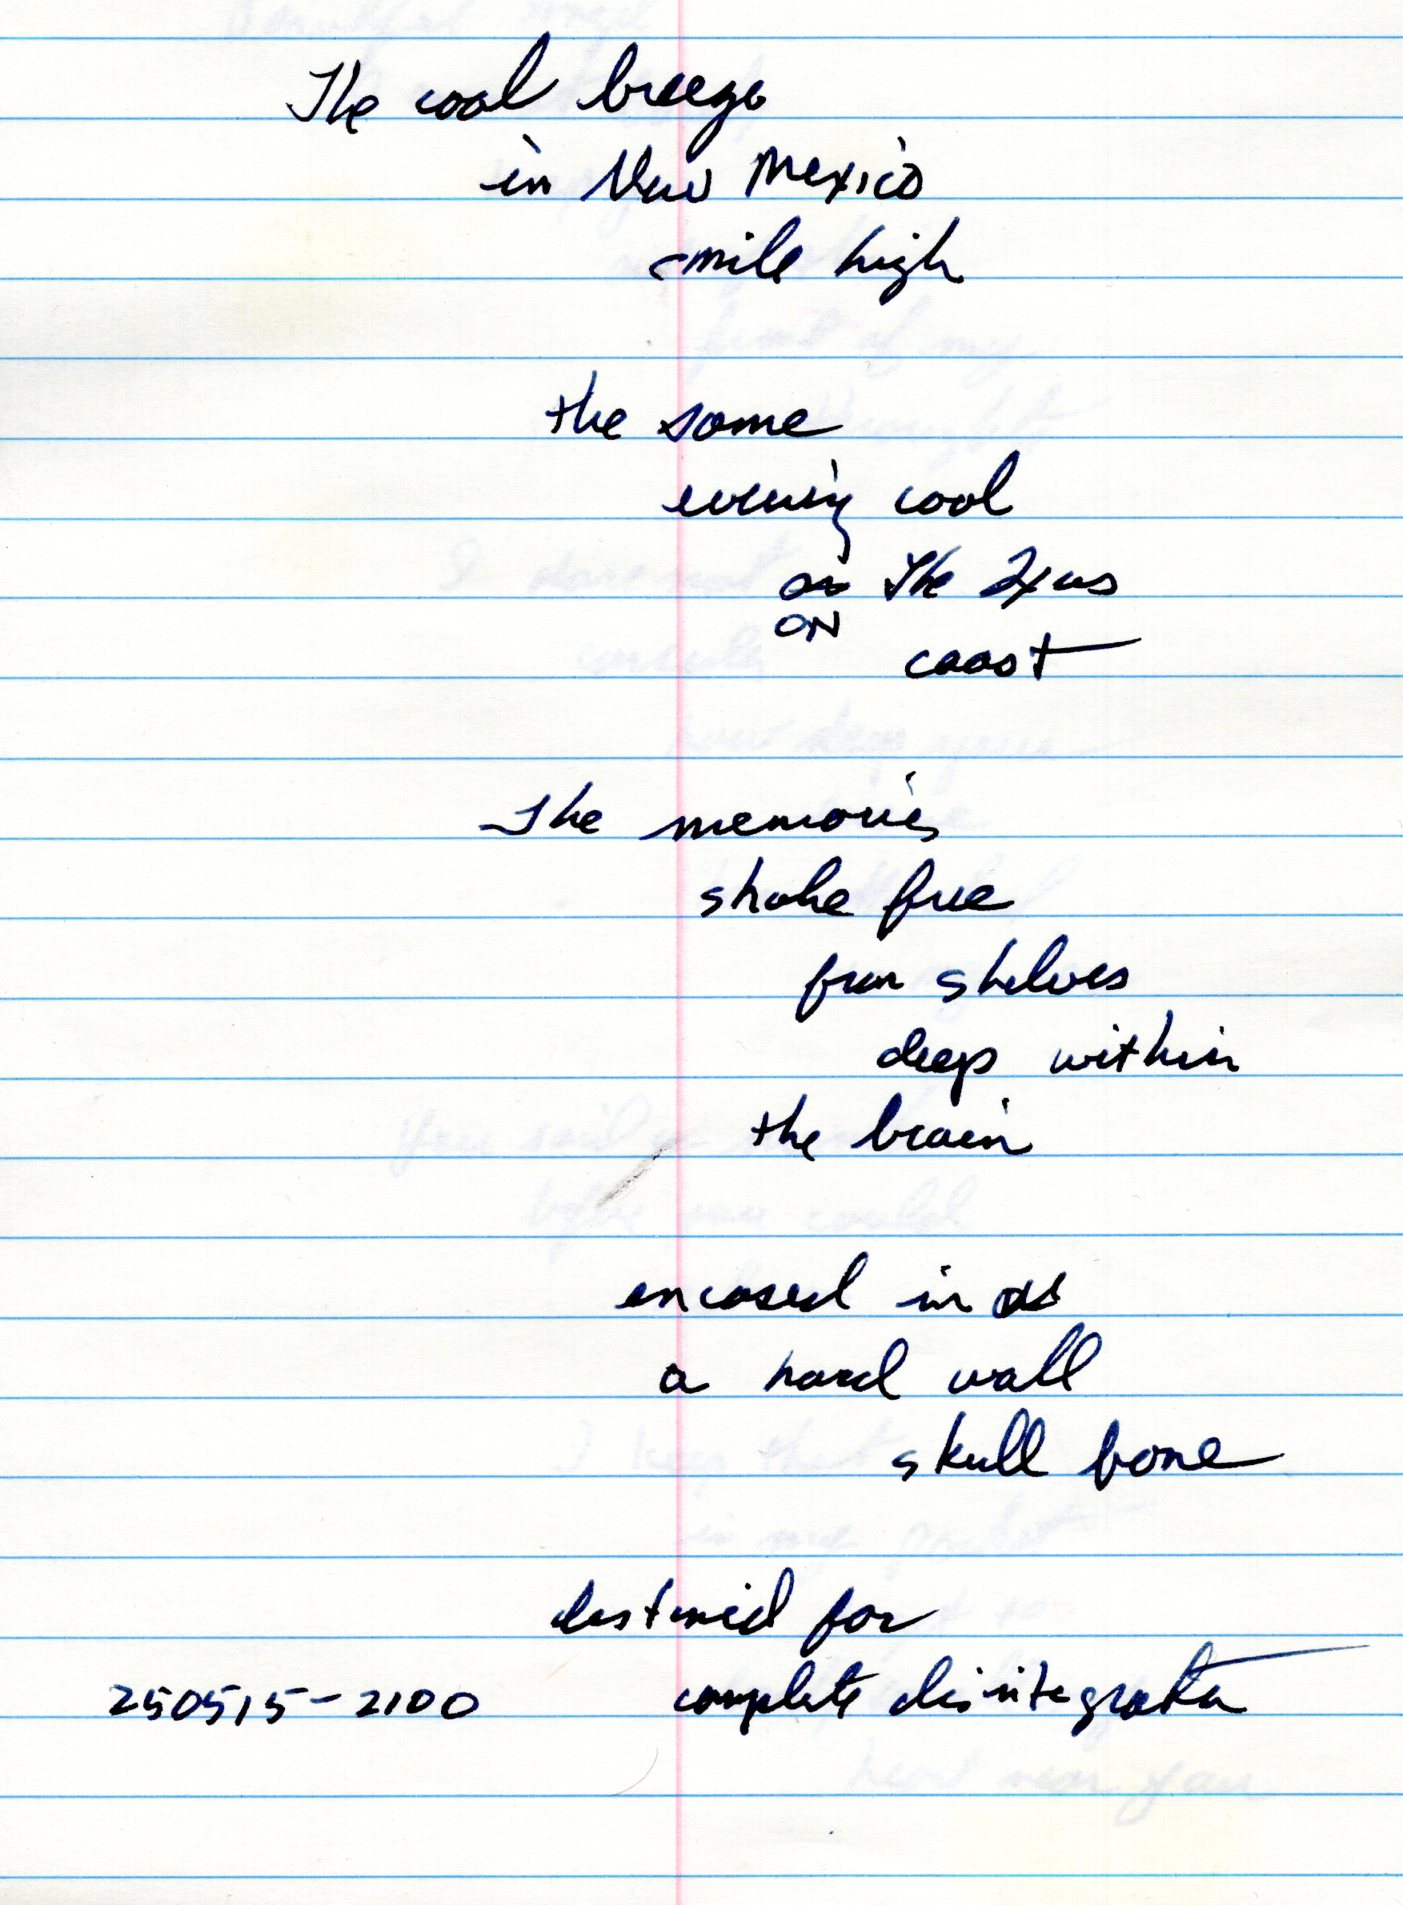 The cool breeze
in New Mexico
mile high
the same
evening cool
on the Texas
ON
coast
The memories
shake free
from shelves
deep within
the brain
encased in
a hard wall
skull bone
destined for
250515-2100 complete disintegration